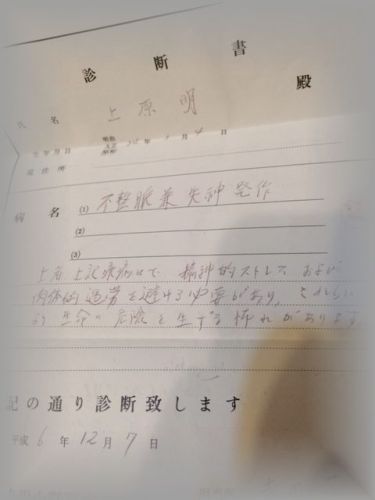 診断書
殿
氏名 上原明
生年月日 年 月 日
現住所
病名 (1) 不整脈兼失神発作
(2)
(3)
上者上記病名で、精神的ストレス および
肉体的過労を避ける必要があり、これらに
生命の危険を生ずる怖れがあります
記の通り診断致します
平成 6 年 12 月 7 日